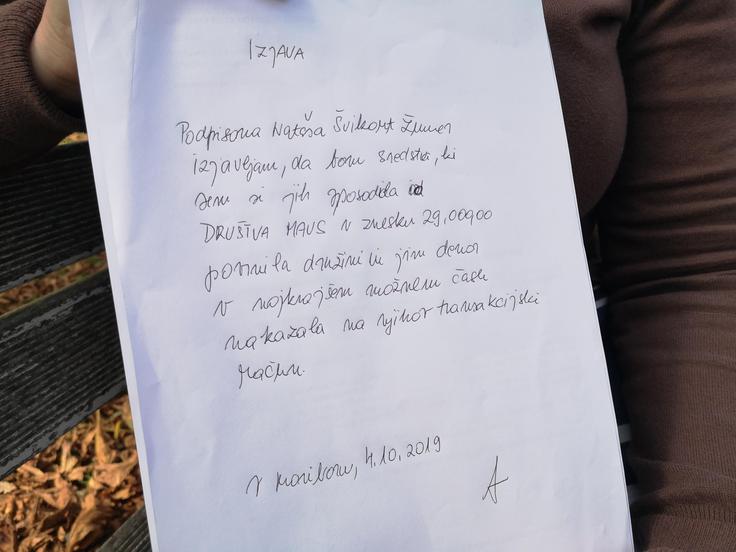 IZJAVA
Podpisana Nataša Švikart Žumer
izjavljam, da bom sredstva, ki
sem si jih sposodila od
DRUŠTVA MAVS v znesku 29.000,00
povrnila družini in jim denar
v najkrajšem možnem času
nakazala na njihov transakcijski
račun.
V Mariboru, 4.10.2019